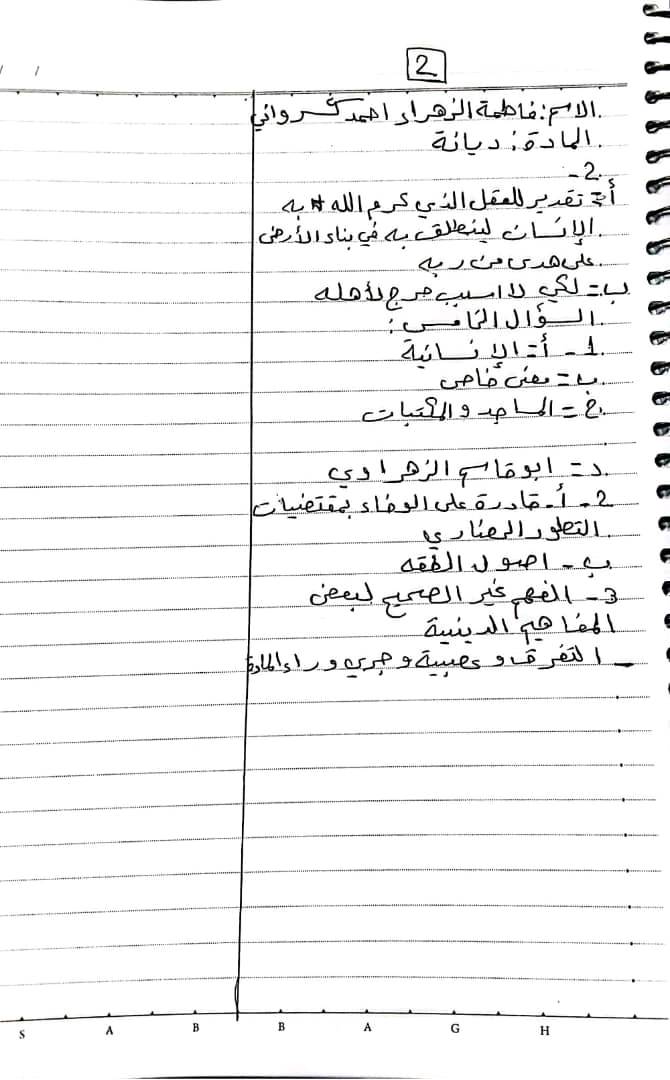 2
/ /
الاسم: فاطمة الزهراء احمد كرواني
المادة: ديانة
2-
أ= تقدير للعقل الذي كرم الله به
الإنسان لينطلق به في بناء الأرض
على هدى من ربه
ب= لكي لا اسبب حرج لأهله
السؤال الخامس:
1- أ= الإنسانية
ب= معنى خاص
ج= المساجد والمكتبات
د= ابو قاسم الزهراوي
2- أ- قادرة على الوفاء بمقتضيات
التطور الحضاري
ب- اصول الفقه
3- الفهم غير الصحيح لبعض
المفاهيم الدينية
- التفرق و عصبية و جري وراء المادة
S A B B A G H